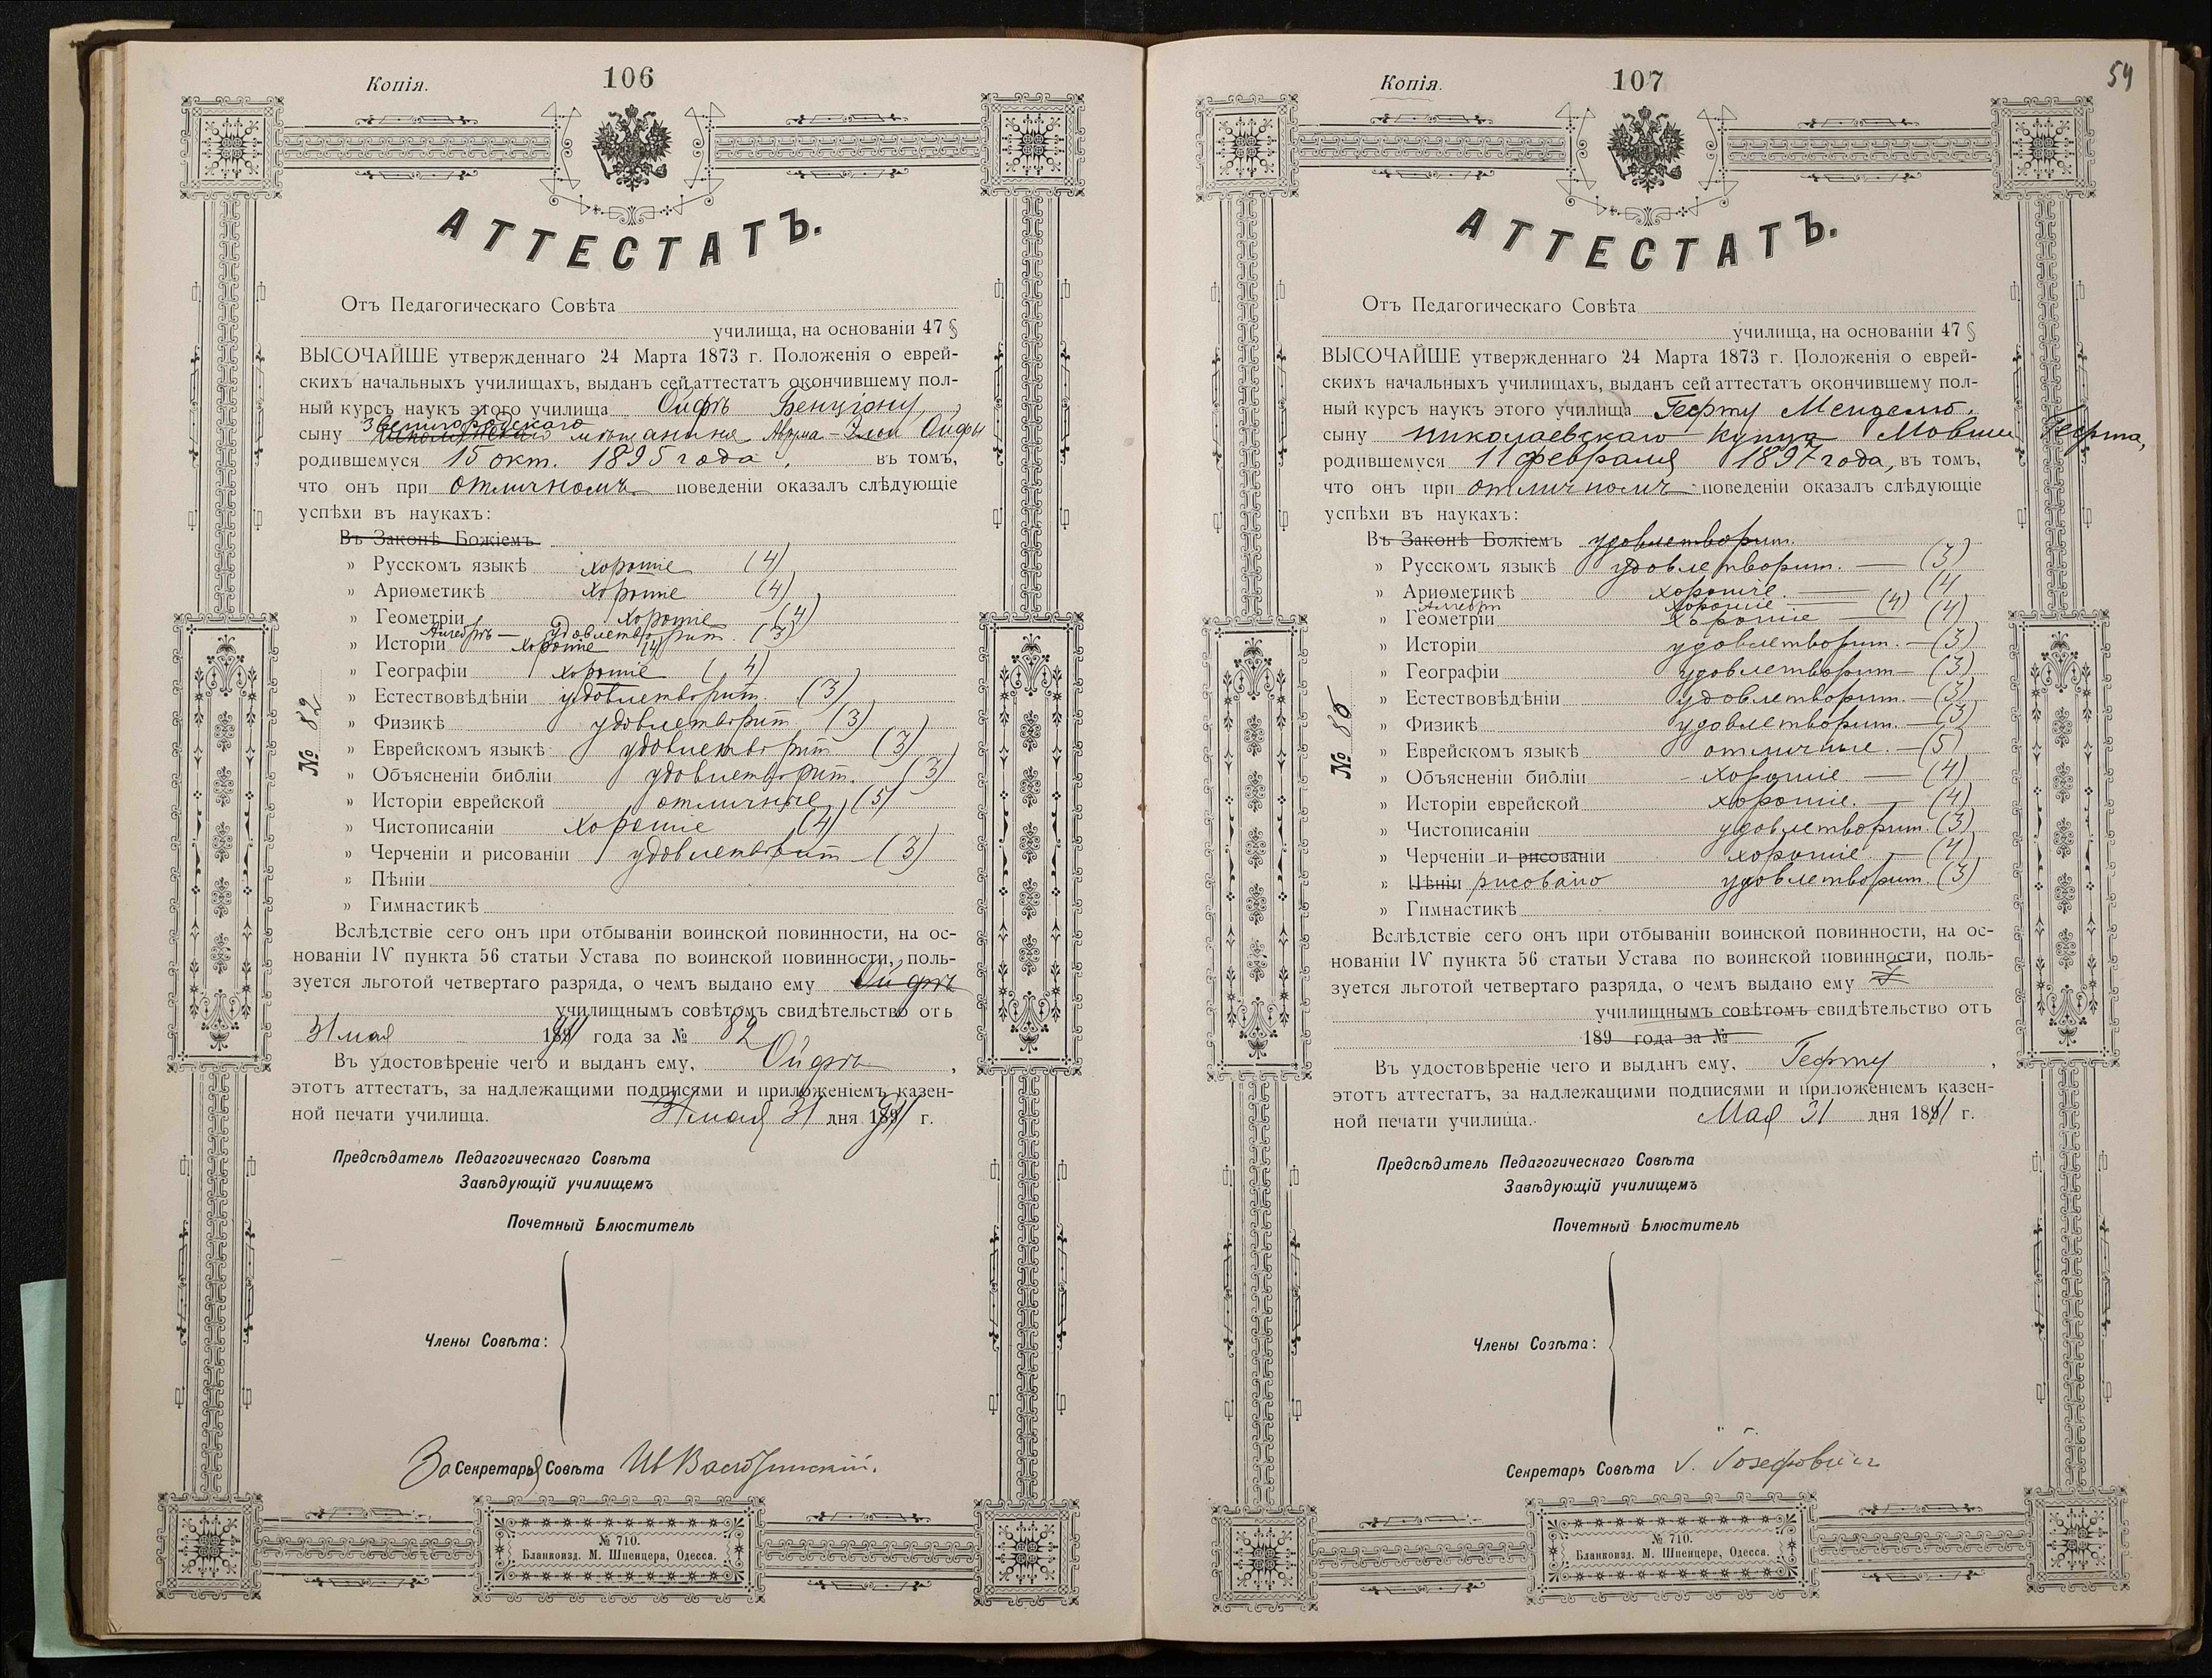 Копія.
106
АТТЕСТАТЪ.
Отъ Педагогическаго Совѣта
училища, на основаніи 47 §
ВЫСОЧАЙШЕ утвержденнаго 24 Марта 1873 г. Положенія о еврей-
скихъ начальныхъ училищахъ, выданъ сей аттестатъ окончившему пол-
ный курсъ наукъ этого училища Ойфъ Бенціону,
Звенигородскаго
сыну мѣщанина Ойфы
родившемуся 15 окт. 1895 года, въ томъ,
что онъ при отличномъ поведеніи оказалъ слѣдующіе
успѣхи въ наукахъ:
Въ Законѣ Божіемъ
» Русскомъ языкѣ хорошіе (4)
» Ариѳметикѣ хорошіе (4)
» Геометріи хорошіе (4)
Алгебрѣ — удовлетворит. (3)
» Исторіи хорошіе (4)
» Географіи хорошіе (4)
» Естествовѣдѣніи удовлетворит. (3)
» Физикѣ удовлетворит (3)
» Еврейскомъ языкѣ удовлетворит (3)
» Объясненіи библіи удовлетворит. (3)
» Исторіи еврейской отличные (5)
» Чистописаніи хорошіе (4)
» Черченіи и рисованіи удовлетворит — (3)
» Пѣніи
» Гимнастикѣ
№ 82
Вслѣдствіе сего онъ при отбываніи воинской повинности, на ос-
нованіи IV пункта 56 статьи Устава по воинской повинности, поль-
зуется льготой четвертаго разряда, о чемъ выдано ему Ойфъ
училищнымъ совѣтомъ свидѣтельство отъ
31 мая 1911 года за № 82
Въ удостовѣреніе чего и выданъ ему, Ойфъ,
этотъ аттестатъ, за надлежащими подписями и приложеніемъ казен-
ной печати училища. 31 мая 31 дня 1911 г.
Предсѣдатель Педагогическаго Совѣта
Завѣдующій училищемъ
Почетный Блюститель
Члены Совѣта:
За Секретаря Совѣта
№ 710.
Бланкоизд. М. Шпенцера, Одесса.
Копія.
107
54
АТТЕСТАТЪ.
Отъ Педагогическаго Совѣта
училища, на основаніи 47 §
ВЫСОЧАЙШЕ утвержденнаго 24 Марта 1873 г. Положенія о еврей-
скихъ начальныхъ училищахъ, выданъ сей аттестатъ окончившему пол-
ный курсъ наукъ этого училища Гефту Менделю,
сыну николаевскаго купца Мовши Гефта,
родившемуся 11 февраля 1897 года, въ томъ,
что онъ при отличномъ поведеніи оказалъ слѣдующіе
успѣхи въ наукахъ:
Въ Законѣ Божіемъ удовлетворит.
» Русскомъ языкѣ удовлетворит. — (3)
» Ариѳметикѣ хорошіе. — (4
Алгебрѣ хорошіе — (4)
» Геометріи хорошіе — (4)
» Исторіи удовлетворит. — (3)
» Географіи удовлетворит — (3)
» Естествовѣдѣніи удовлетворит. — (3)
» Физикѣ удовлетворит. — (3)
» Еврейскомъ языкѣ отличные. — (5)
» Объясненіи библіи — хорошіе. — (4)
» Исторіи еврейской хорошіе. — (4)
» Чистописаніи удовлетворит. (3)
» Черченіи и рисованіи хорошіе. — (4)
» Пѣніи рисованіе удовлетворит. (3)
» Гимнастикѣ
№ 86
Вслѣдствіе сего онъ при отбываніи воинской повинности, на ос-
нованіи IV пункта 56 статьи Устава по воинской повинности, поль-
зуется льготой четвертаго разряда, о чемъ выдано ему
училищнымъ совѣтомъ свидѣтельство отъ
189 года за №
Въ удостовѣреніе чего и выданъ ему, Гефту,
этотъ аттестатъ, за надлежащими подписями и приложеніемъ казен-
ной печати училища. Мая 31 дня 1911 г.
Предсѣдатель Педагогическаго Совѣта
Завѣдующій училищемъ
Почетный Блюститель
Члены Совѣта:
Секретарь Совѣта І. Іозефовичъ
№ 710.
Бланкоизд. М. Шпенцера, Одесса.